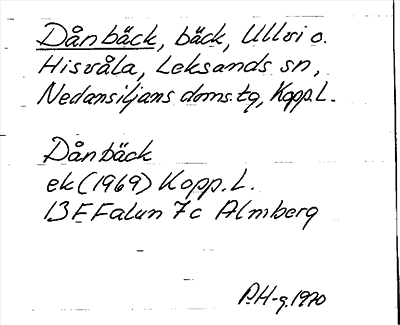 Dånbäck, bäck, Ullvi o.
Hisvåla, Leksands sn,
Nedansiljans doms.tg, Kopp.L.
Dånbäck
ek (1969) Kopp.L.
13 F Falun 7c Almberg
P.H-g.1970